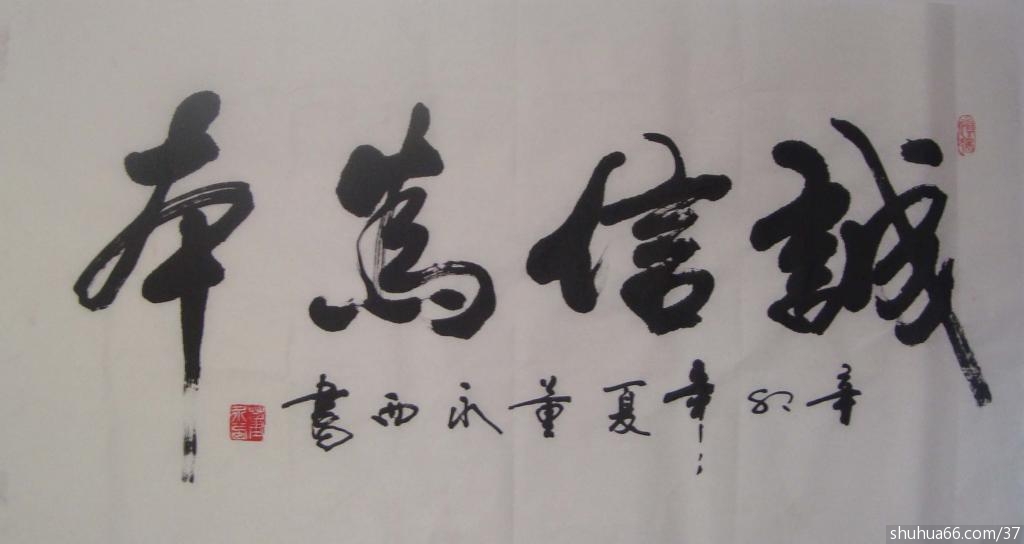 誠信為本
辛卯年夏董永西書
shuhua66.com/37